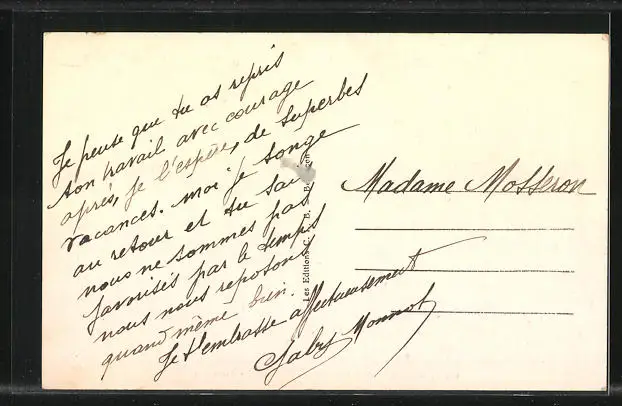 Je pense que tu as repris
ton travail avec courage
après, je l'espère, de superbes
vacances. Moi je songe
au retour et tu sais
nous ne sommes pas
favorisés par le temps
nous nous reposons
quand même bien.
Je t'embrasse affectueusement
Gaby Monnot
Madame Mosseron
Les Editions C. B.